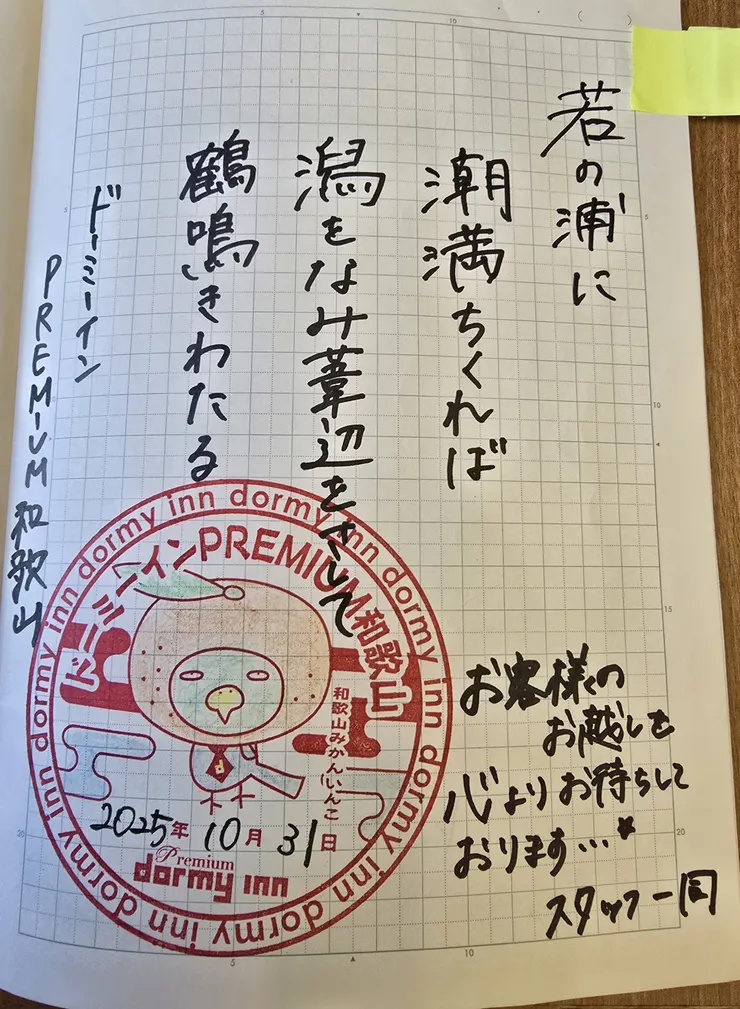 若の浦に
潮満ちくれば
潟をなみ葦辺をさして
鶴鳴きわたる
ドーミーイン
PREMIUM和歌山
dormy inn dormy inn dormy inn dormy inn dormy inn dormy inn dormy inn
ドーミーインPREMIUM和歌山
和歌山みかんいんこ
2025年10月31日
Premium
dormy inn
お客様の
お越しを
心よりお待ちして
おります…*
スタッフ一同
5
10
5
10
15
20
5
10
20